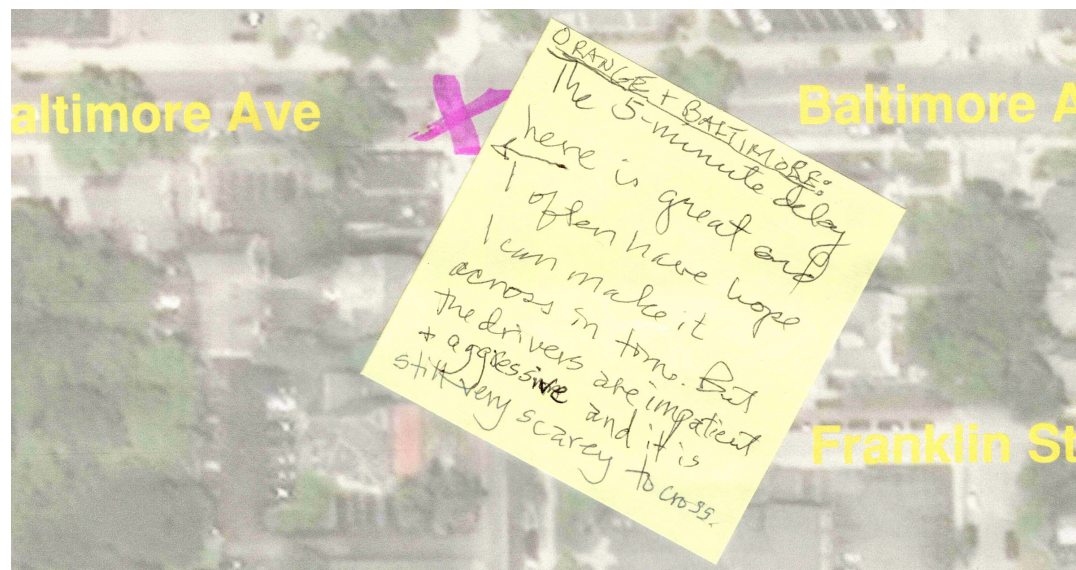 altimore Ave
Baltimore A
ORANGE + BALTIMORE:
The 5-minute delay
here is great and
I often have hope
I can make it
across in time. But
the drivers are impatient
+ aggressive and it is
still very scarey to cross.
Franklin St